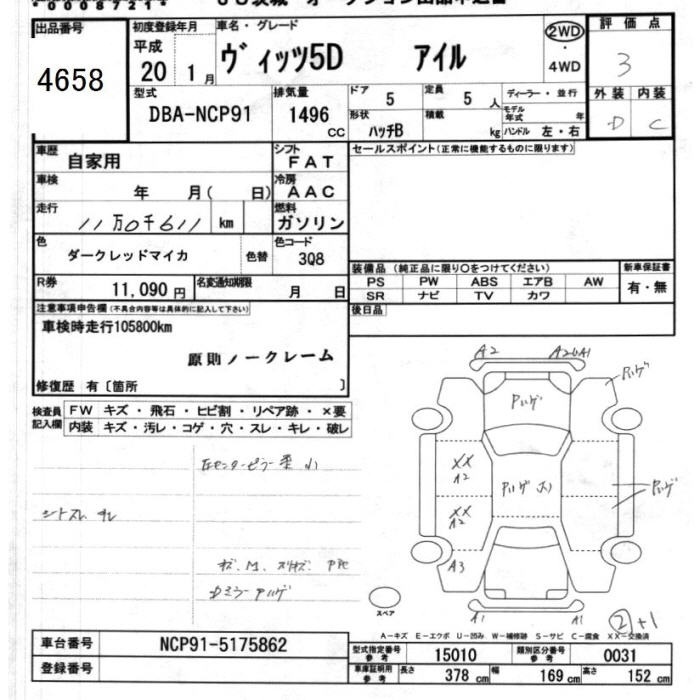 *0008721*
出品番号
4658
初度登録年月
平成
20 1月
車名・グレード
ヴィッツ5D アイル
2WD
・
4WD
評価点
3
型式
DBA-NCP91
排気量
1496
CC
ドア
5
定員
5 人
ディーラー・並行
モデル年式 年
形状
ハッチB
積載
kg
ハンドル 左・右
外装 内装
D C
車歴
自家用
シフト
FAT
車検
年 月( 日)
冷房
AAC
走行
11万0千611 km
燃料
ガソリン
色
ダークレッドマイカ
色替
色コード
3Q8
R券
11,090 円
名変通知期限
月 日
セールスポイント(正常に機能するものに限ります)
装備品 (純正品に限り○をつけてください)
PS PW ABS エアB AW
SR ナビ TV カワ
新車保証書
有・無
後日品
注意事項申告欄(不具合内容等は具体的に記入して下さい)
車検時走行105800km
原則ノークレーム
修復歴 有〔箇所 〕
検査員
記入欄
FW キズ・飛石・ヒビ割・リペア跡・×要
内装 キズ・汚レ・コゲ・穴・スレ・キレ・破レ
A2
A2UA1
ハゲ
XX
A2
XX
A2
A3
A1
A1
スペア
②+1
A-キズ E-エクボ U-凹み W-補修跡 S-サビ C-腐食 XX-交換済
車台番号
NCP91-5175862
登録番号
型式指定番号
参考
15010
類別区分番号
参考
0031
車庫証明用
参考
長さ 378 cm 幅 169 cm 高さ 152 cm